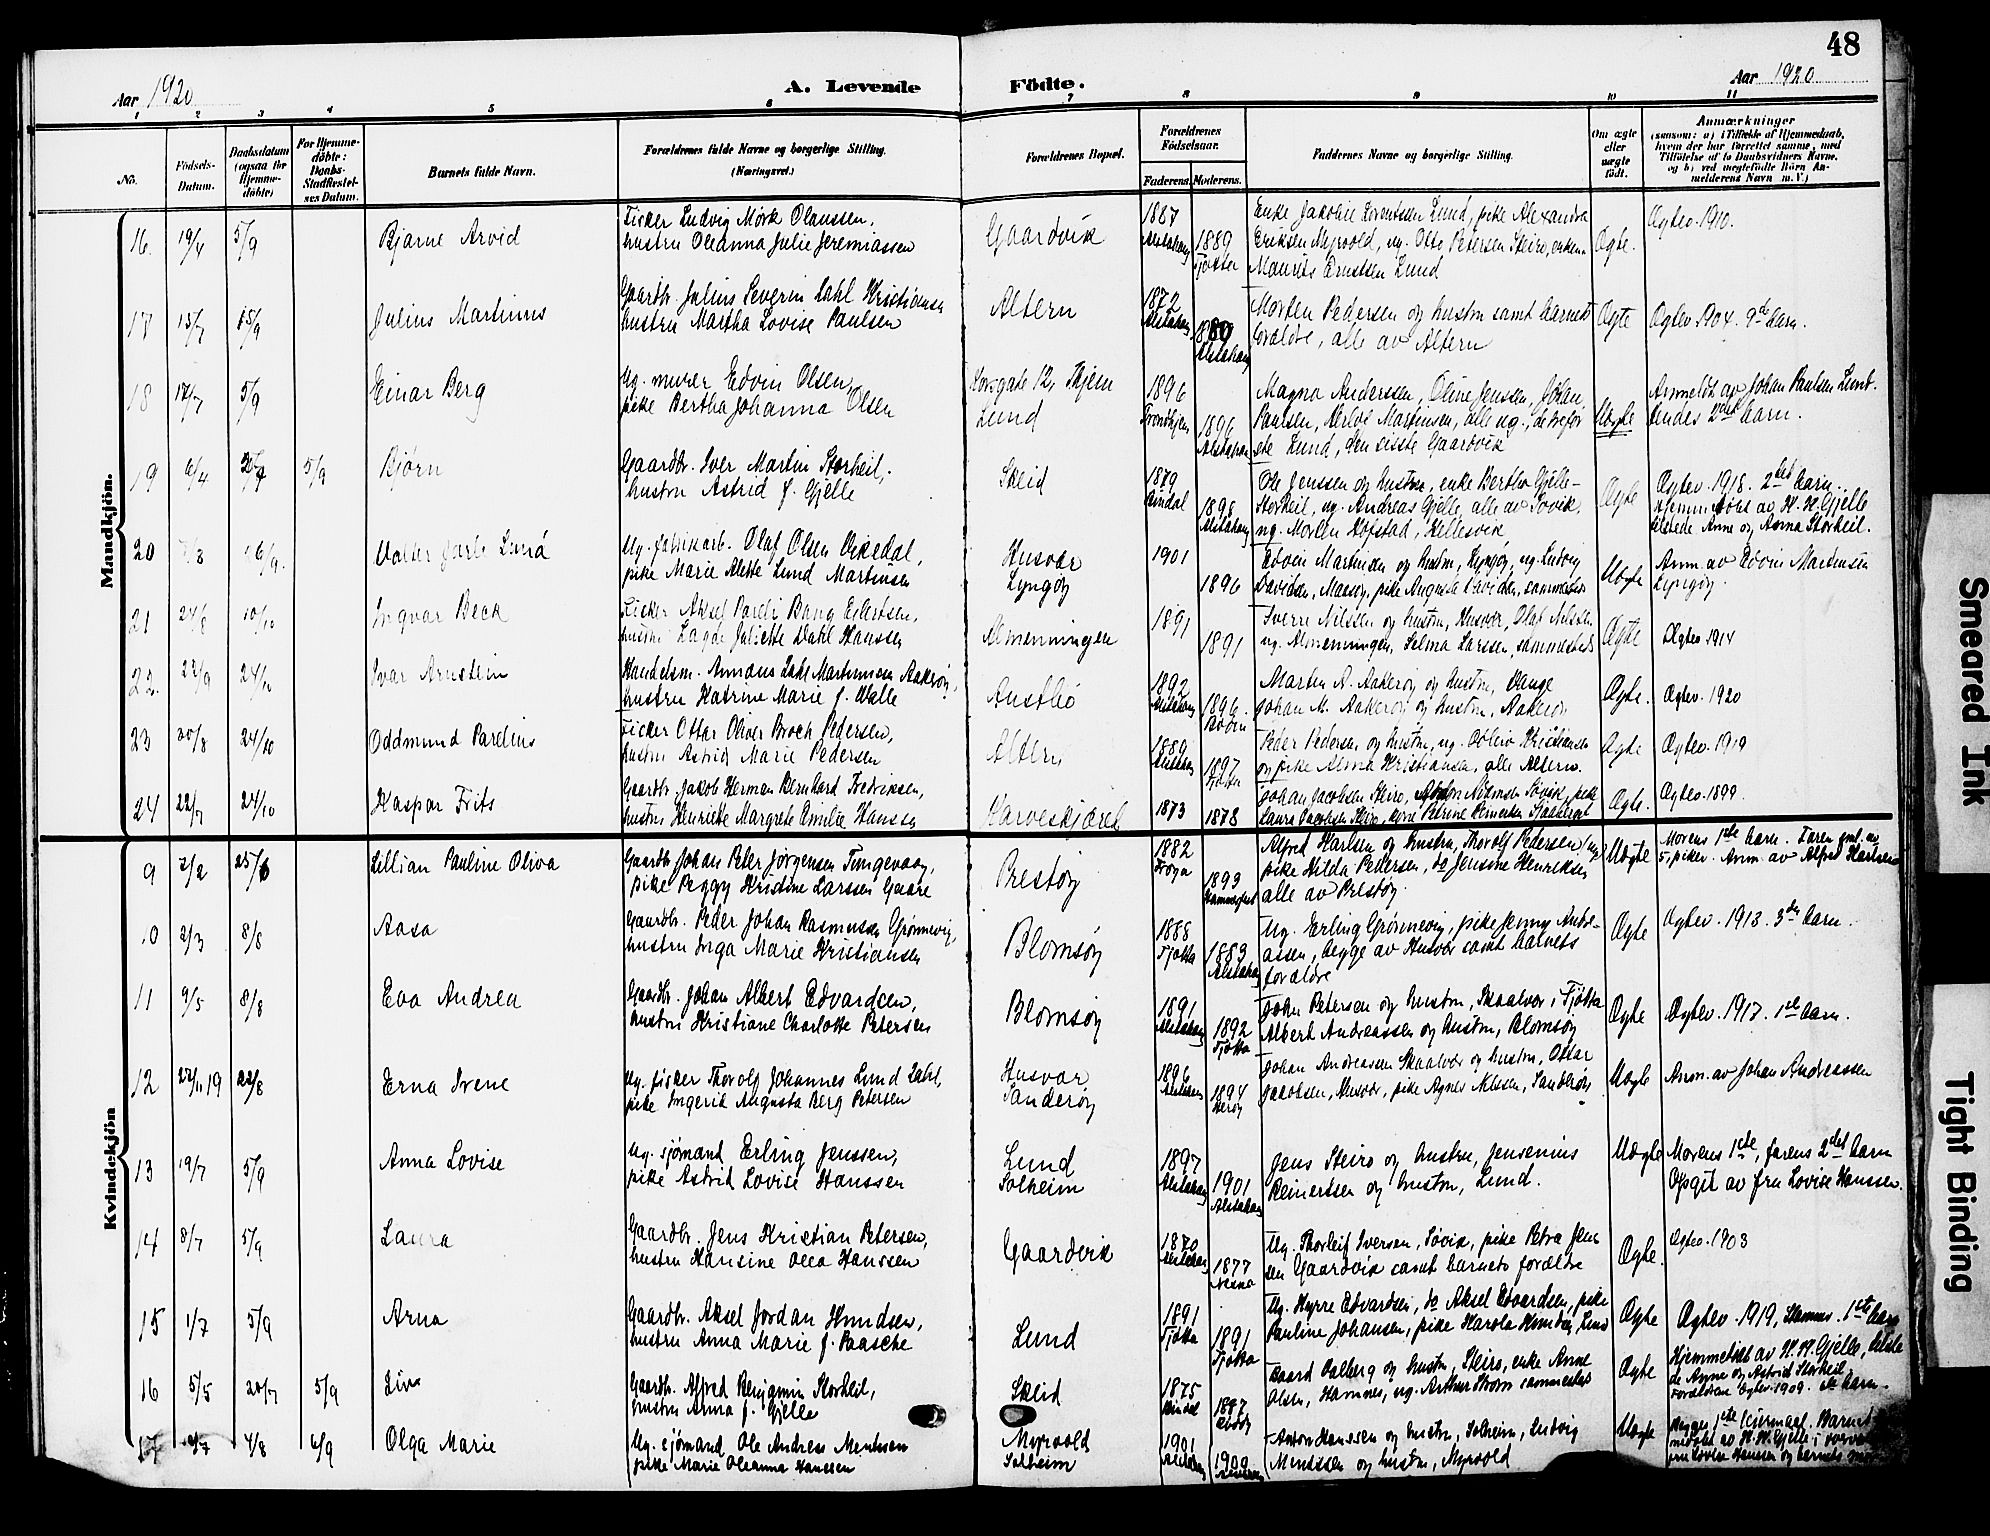 48
Aar 1920
A. Levende Födte.
Aar 1920
1 2 3 4 5 6 7 8 9 10 11
No.
Födsels-
Datum.
Daabsdatum
(ogsaa for
Hjemme-
döbte)
For Hjemme-
döbte:
Daabs-
Stadfæstel-
ses Datum.
Barnets fulde Navn.
Forældrenes fulde Navne og borgerlige Stilling.
(Næringsvei.)
Forældrenes Bopæl.
Forældrenes
Födselsaar.
Faderens. Moderens.
Faddernes Navne og borgerlige Stilling.
Om ægte
eller
uægte
födt.
Anmærkninger
(saasom: a) i Tilfælde af Hjemmedaab,
hvem der har forrettet samme, med
Tilföielse af to Daabsvidners Navne,
og b) ved uægtefödte Börn An-
melderens Navn m. V.)
Mandkjön.
16. 19/4 5/9
Bjarne Arvid
Fisker Ludvig Mørk Olaussen,
hustru Oleanna Julie Jeremiassen
Gaardvik
1887
Alstahaug
1889
Tjøtta
Enke Jakobie Lorentsen Lund, pike Alexandra
Eriksen Myrvold, ug. Otto Petersen Steiro, enkem.
Maurits Arntsen Lund
Ægte.
Ægtev. 1910.
17 15/7 15/9
Julius Martinus
Gaardbr. Julius Severin Dahl Kristiansen
hustru Martha Lovise Paulsen
Altern
1872
Alstahaug
1880
Alstahaug
Morten Pedersen og hustru samt barnets
forældre, alle av Altern
Ægte
Ægtev. 1904. 9de barn.
18 17/7 5/9
Einar Berg
Ug. murer Edvin Olsen,
pike Bertha Johanna Olsen
Korsgate 12, Thjem
Lund
1896
Trondhjem
1896
Alstahaug
Magna Anderssen, Oline Jensen, Johan
Paulsen, Herlof Martinsen, alle ug., de tre før
ste Lund, den siste Gaardvik
Uægte
Anmeldt av Johan Paulsen Lund.
Hendes 2det barn.
19 6/4 5/9
Bjørn
Gaardbr. Iver Martin Storheil,
hustru Astrid f. Gjelle
Skeid
1879
Bindal
1898
Alstahaug
Ole Jenssen og hustru, enke Bertha Gjelle-
Storheil, ug. Andreas Gjelle, alle av Søvik,
ug. Morten Hofstad, Hellesvik
Ægte
Ægtev. 1918. 2det barn.
Hjemmedøbt av H. H. Gjelle
tilstede Anne og Anna Storheil.
20 /8 16/9.
Valter Jarle Lund
Ug. fabrikarb. Olaf Olsen Vikedal,
pike Marie Alette Lund Martinsen
Husvær
Lyngøy
1901
1896
Edvin Martinsen og hustru, Lyngøy, ug. Ludvig
Davidsen, Maasøy, pike Augusta Davidsen, sammesteds
Uægte
Anm. av Edvin Martinsen
Lyngøy.
21 24/8 10/10
Ingvar Beck
Fisker Aksel Parelli Bang Edertsen,
hustru Lagde Juliette Dahl Hanssen
Almenningen
1891
1891
Sverre Nilssen og hustru, Husvær, Olaf Nilssen
ug. Almenningen, Selma Larssen, sammesteds
Ægte
Ægtev 1914
22. 22/9 24/10
Ivar Arnstein
Handelsm. Annæus Dahl Martinusen Aakerøy,
hustru Katrine Marie f. Walle
Austbø
1892
Alstahaug
1896.
Marten A. Aakerøy og hustru,
Johan M. Aakerøy og hustru, Aakerøy
Ægte.
Ægtev. 1920
23 20/8 24/10
Oddmund Parelius
Fisker Ottar Oliver Broch Pedersen,
hustru Astrid Marie Pedersen
Altern
1889
Alstahaug
1897
Tjøtta
Peder Pedersen og hustru, ug. Kristiansen
og pike Alma Kristiansen, alle Altern.
Ægte
Ægtev. 1919
24 22/7 24/10
Kaspar Frits
Gaardbr. Jakob Herman Bernhard Fredriksen,
hustru Henriette Margrete Emilie Hanssen
Karveskjæret
1873
1878
Johan Jacobsen Steiro, Søvik, pike
Laura Jacobsen Steiro,
Ægte.
Ægtev. 1899.
Kvindekjön
9 7/2 25/6
Lillian Pauline Oliva
Gaardbr. Johan Peter Jørgensen Tungevaag,
pike Peggy Kristine Larssen Gaare
Prestøy
1882
Frøya
1893
Hammerfest
Alfred Karlsen og hustru, Thorolf Pedersen, ug.
pike Hilda Pedersen, do Jensine Henriksen
alle av Prestøy.
Uægte
Morens 1ste barn. Faren gml. av
5 piker. Anm. av Alfred Karlsen
10 2/3 8/8
Aasa
Gaardbr. Peder Johan Rasmussen Grønnevig,
hustru Inga Marie Kristiansen
Blomsøy
1888
Tjøtta
1883
Alstahaug
Ug. Erling Grønnevig, pike Jenny Andre-
assen, begge av Husvær samt barnets
forældre
Ægte
Ægtev. 1913. 3die barn.
11 9/5 8/8
Eva Andrea
Gaardbr. Johan Albert Edvardsen,
hustru Kristiane Charlotte Petersen
Blomsøy
1891
Alstahaug
1892
Tjøtta
John Petersen og hustru, Skaalvær i Tjøtta
Albert Andreassen og hustru, Blomsøy
Ægte
Ægtev. 1917. 1ste barn.
12 22/11 19 22/8
Erna Irene
Ug. fisker Thorolf Johannes Lund Dahl,
pike Ingerid Augusta Berg Petersen
Husvær
Sanderøy
1896
Alstahaug
1894
Herøy
Johan Andreassen Skaalvær og hustru, Ottar
Jakobsen, Husvær, pike Agnes Nilsen, Sanderøy
Uægte
Anm. av Johan Andreassen
13 19/7 5/9
Anna Lovise
Ug. sjømand Erling Jenssen,
pike Astrid Lovise Hanssen
Lund
Solheim
1897
Alstahaug
1901
Alstahaug
Jens Steiro og hustru, Jensenius
Reinertsen og hustru, Lund.
Uægte
Morens 1ste, farens 2det barn
Opgit av fru Lovise Hanssen.
14 8/7 5/9
Laura
Gaardbr. Jens Kristian Petersen,
hustru Hansine Olea Hanssen
Gaardvik
1870
Alstahaug
1877
Ug. Thorleif Iversen, Søvik, pike Petra Jen
sen Gaardvik samt barnets forældre
Ægte.
Ægtev. 1903
15 1/7 5/9
Arna
Gaardbr. Aksel Jordan Knudsen,
hustru Anna Marie f. Paasche
Lund
1891
Tjøtta
1891
Tjøtta
Ug. Hyrre Edvardsen, do Aksel Edvardsen, pike
Pauline Johansen, pike Harola Knudsen, Lund
Ægte
Ægtev. 1919, Hamnes. 1ste barn
16 5/5 20/7 5/9
Liv
Gaardbr. Alfred Benjamin Storheil,
hustru Anna f. Gjelle
Skeid
1875
Bindal
1887
Baard Aalberg og hustru, Steiro, enke Anne
Olsen, Hamnes, ug. Arthur Strøm sammesteds
Ægte
Hjemmedøbt av H. H. Gjelle, tilste
de Anne og Astrid Storheil.
Forældrene Ægtev. 1909. barn.
17 /7 4/8 6/9
Olga Marie
Ug. sjømand Ole Andreas Mentsen
pike Marie Oleanna Hanssen
Myrvold
Solheim
1901
Alstahaug
1900
Alstahaug
Anton Hanssen og hustru, Solheim, Ludvig
Mentssen og hustru, Myrvold
Uægte
Begges 1ste leiermaal. Barnet
av H. H. Gjelle i
fru Lovise Hanssen og barnets
Smeared Ink
Tight Binding